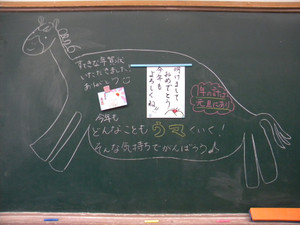 すてきな年賀状
いただきました!
ありがとう
明けまして
おめでとう
今年も
よろしくね!!
1年の計は
元旦にあり
今年も
どんなことも うまくいく!
そんな気持ちでがんばろう♪